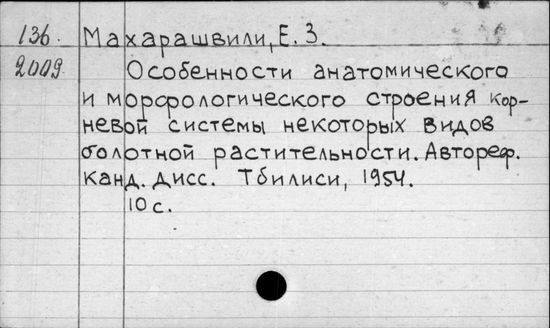 136. Махарашвили, Е. З.
2009 Особенности анатомического
и морфологического строения кор-
невой системы некоторых видов
болотной растительности. Автореф.
канд. дисс. Тбилиси, 1954.
10 с.